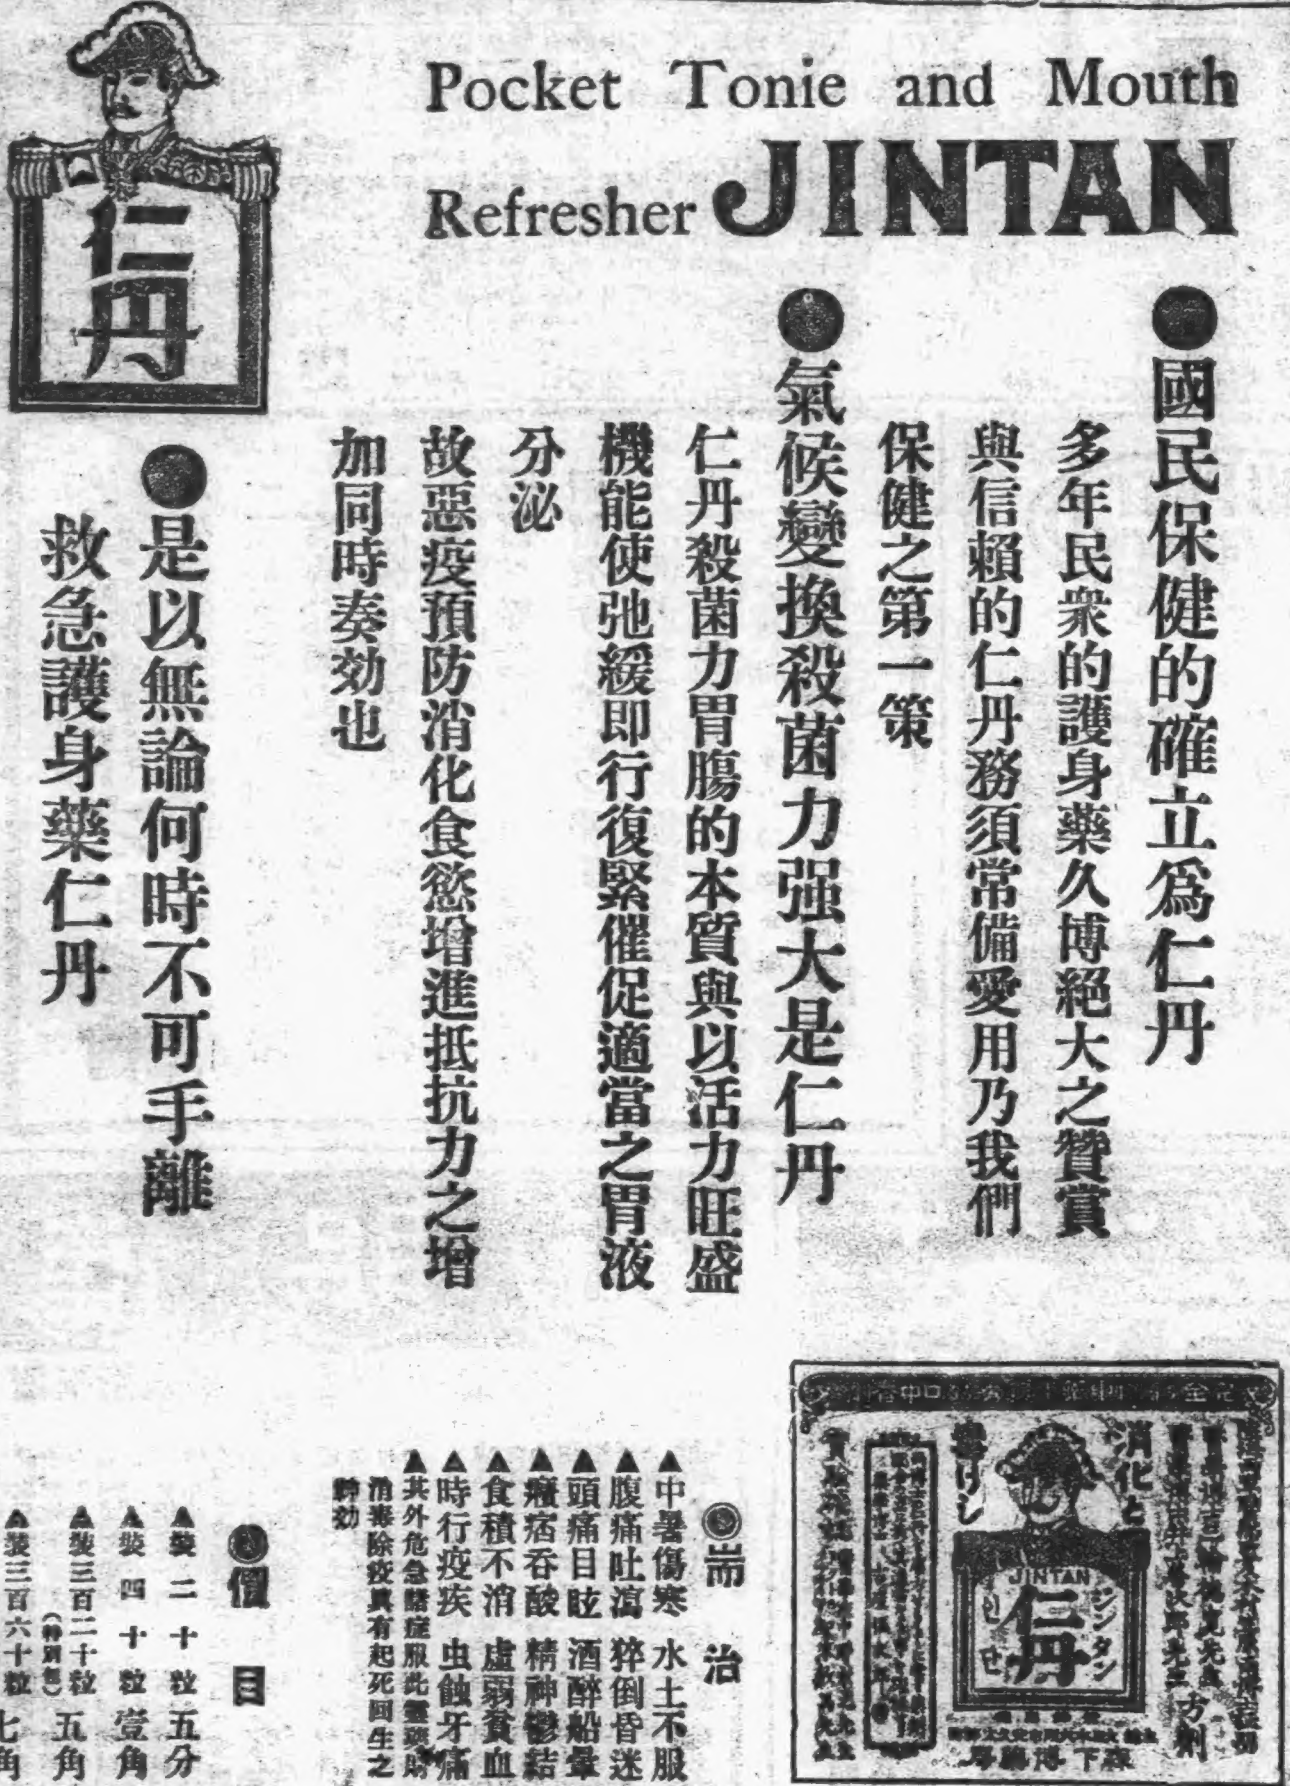 Pocket Tonie and Mouth
Refresher JINTAN
仁丹
●國民保健的確立爲仁丹
多年民衆的護身藥久博絕大之贊賞
與信賴的仁丹務須常備愛用乃我們
保健之第一策
●氣候變換殺菌力强大是仁丹
仁丹殺菌力胃膓的本質與以活力旺盛
機能使弛緩即行復緊催促適當之胃液
分泌
故惡疫預防消化食慾增進抵抗力之增
加同時奏効也
●是以無論何時不可手離
救急護身藥仁丹
消化と
毒けし
JINTAN
仁丹
ジンタン
인단
方劑
森下博
◉耑治
▲中暑傷寒 水土不服
▲腹痛吐瀉 猝倒昏迷
▲頭痛目眩 酒醉船暈
▲癪痞吞酸 精神鬱結
▲食積不消 虛弱貧血
▲時行疫疾 虫蝕牙痛
▲其外危急諸症服此靈藥則
消毒除疫眞有起死回生之
◉價目
▲裝二十粒 五分
▲裝四十粒 壹角
▲裝三百二十粒 五角
▲裝三百六十粒 七角